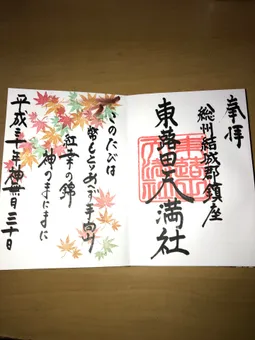 奉拝
総州結城郡鎮座
東蕗田天満社
このたびは
幣もとりあへず手向山
紅葉の錦
神のまにまに
平成三十年神無月三十日